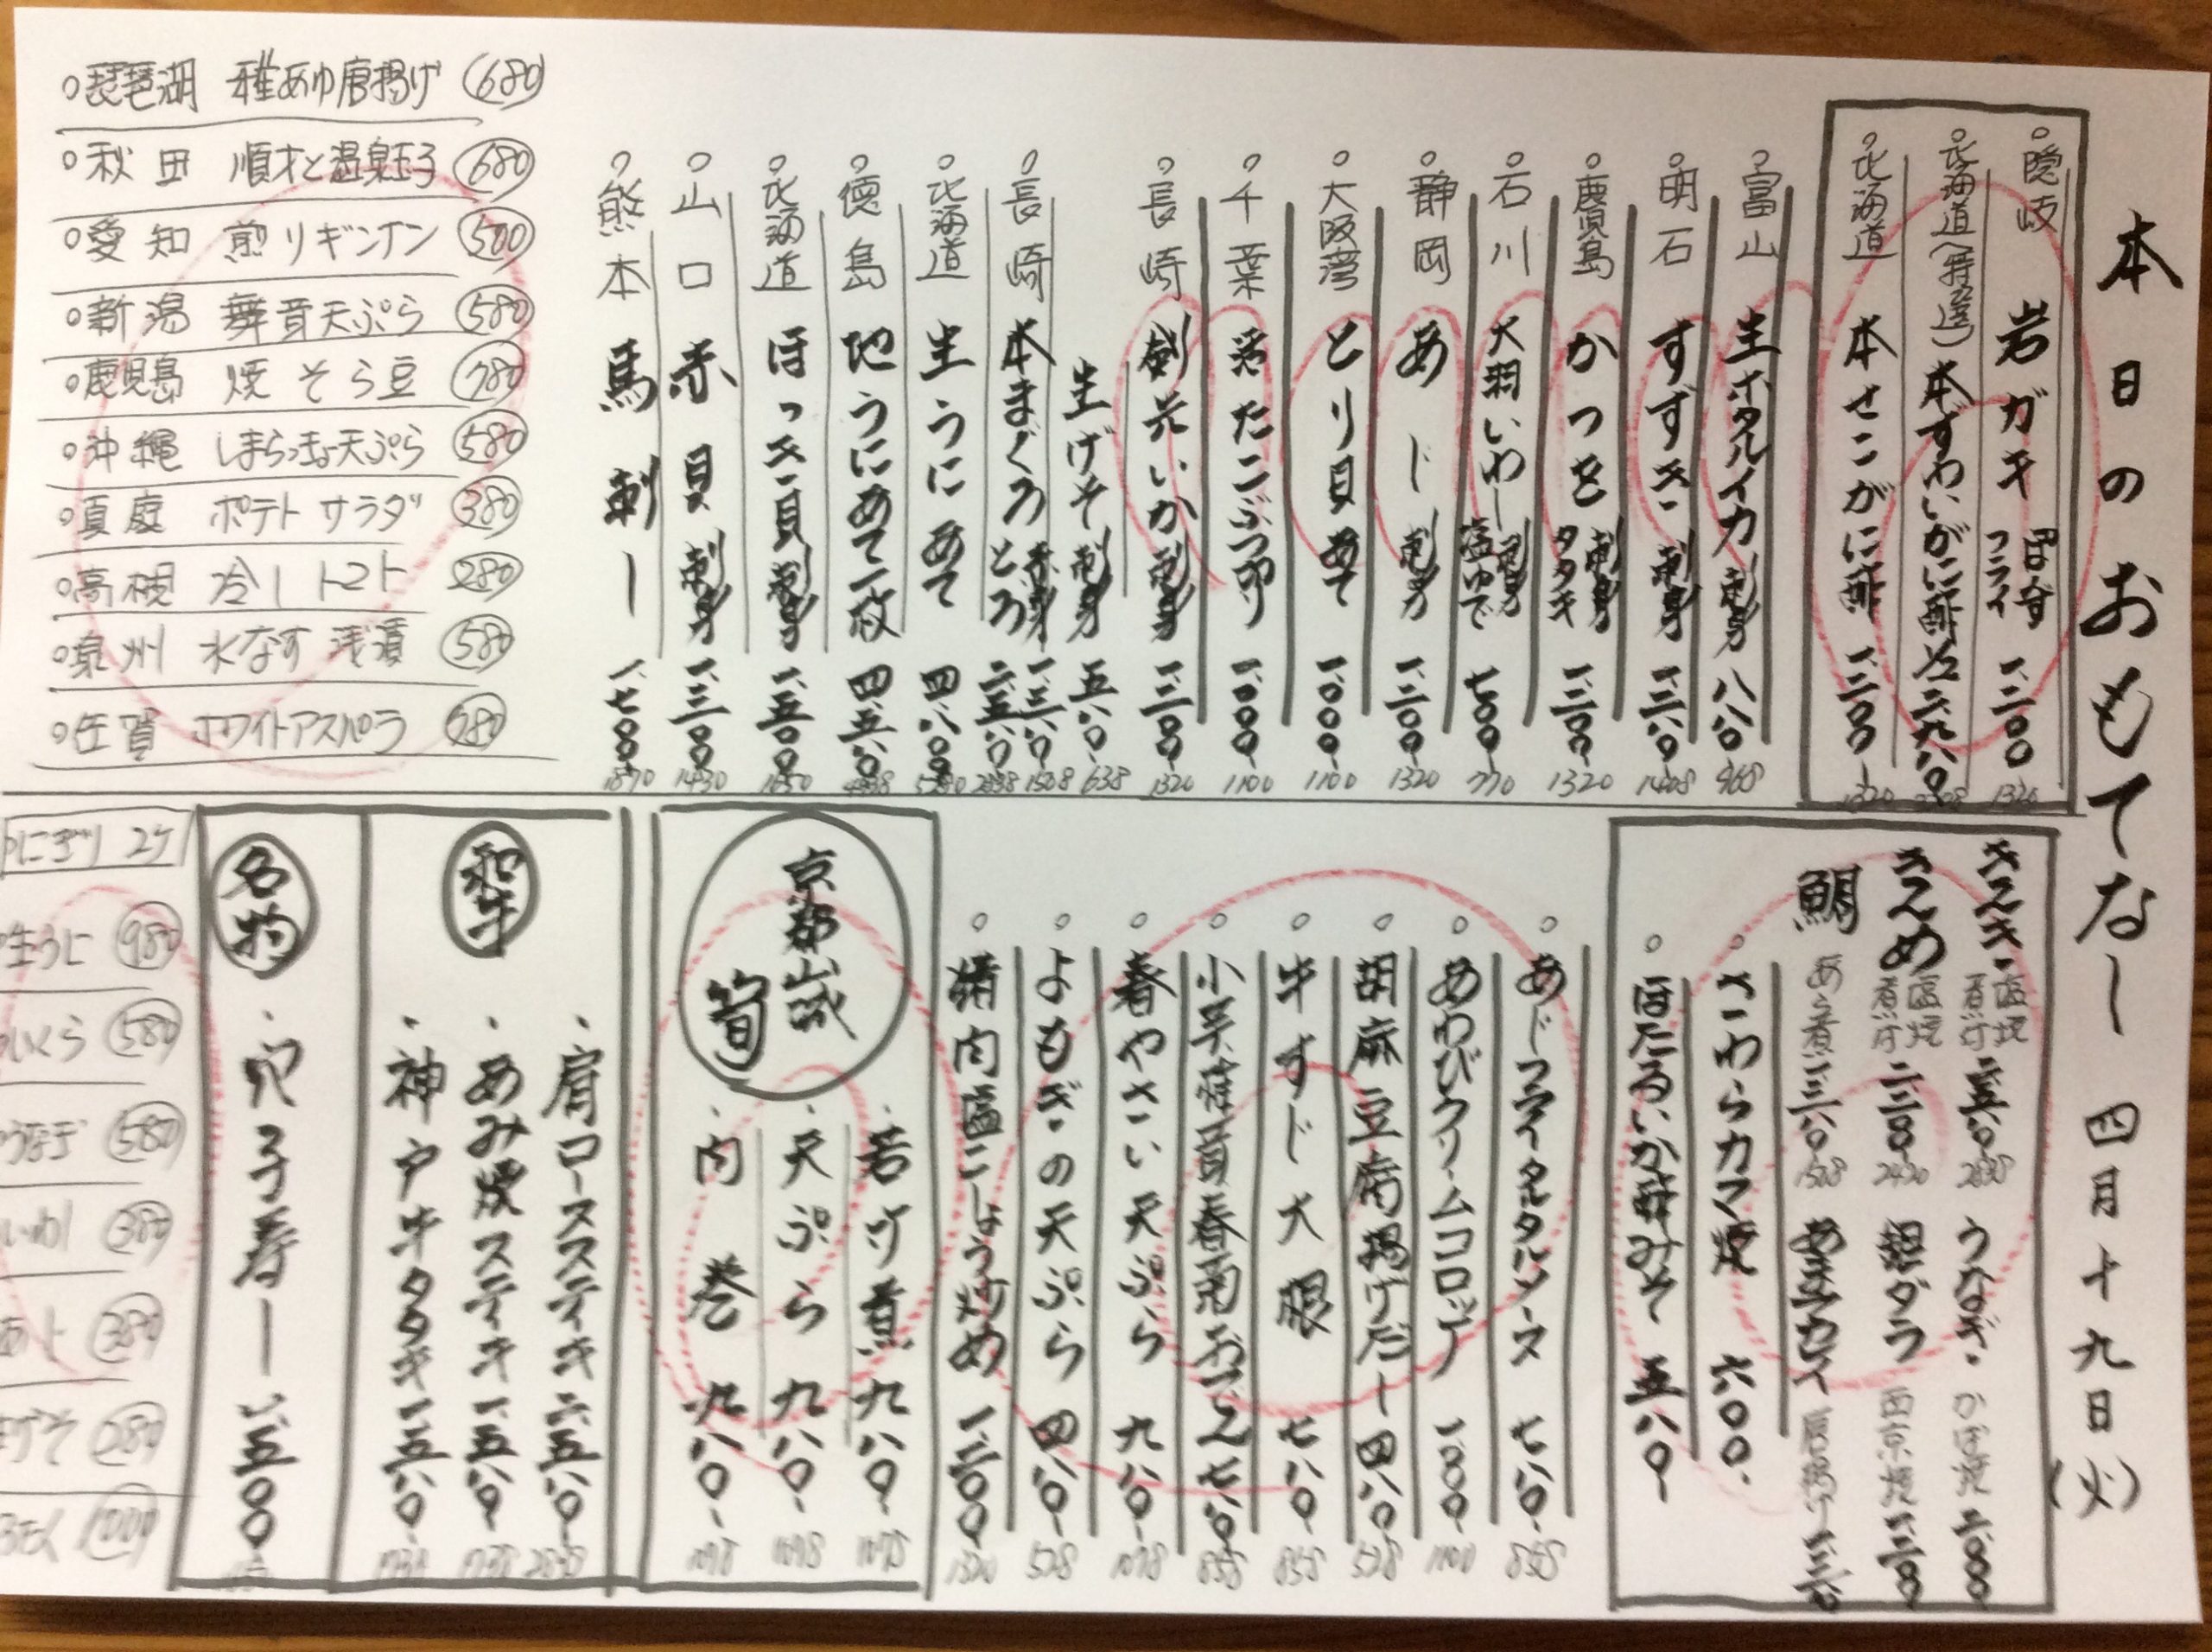 本日のおもてなし 四月十九日(火)
隠岐 岩ガキ ぽん酢 フライ 一、二〇〇 1320
北海道(特選) 本ずわいがに酢
北海道 本せこがに酢 一、二〇〇 1320
富山 生ホタルイカ 刺身 八八〇 968
明石 すずき 刺身 一、二八〇 1408
鹿児島 かつを 刺身 タタキ 一、二〇〇 1320
石川 大羽いわし 刺身 塩ゆで 七〇〇 770
静岡 あじ 刺身 一、二〇〇 1320
大阪湾 とり貝 あて 一、〇〇〇 1100
千葉 活たこぶつ切り 一、〇〇〇 1100
長崎 剣先いか 刺身 一、二〇〇 1320
生げそ 刺身 五八〇 638
長崎 本まぐろ 赤身 一、三八〇 1508 とろ 二、五八〇 2838
北海道 生うにあて 四、八〇〇 5280
徳島 地うにあて一枚 四、五八〇
北海道 ほっき貝 刺身 一、五〇〇 1650
山口 赤貝 刺身 一、三〇〇 1430
熊本 馬刺し 一、七〇〇 1870
琵琶湖 稚あゆ唐揚げ 680
秋田 順才と温泉玉子 680
愛知 煎りギンナン 500
新潟 舞茸天ぷら 580
鹿児島 焼そら豆 780
沖縄 島らっきょ天ぷら 580
真庭 ポテトサラダ 380
高槻 冷しトマト 280
泉州 水なす浅漬 580
佐賀 ホワイトアスパラ 780
きんき 塩焼 煮付 二、五八〇 2838 うなぎ かば焼 二、〇八〇
きんめ 塩焼 煮付 二、二〇〇 2420 銀ダラ 西京焼 一、三八〇
鯛 あら煮 一、三八〇 1508 あまてカレイ 唐揚げ
さわらカマ焼 六〇〇
ほたるいか酢みそ 五八〇
あじフライタルタルソース 七八〇 858
あわびクリームコロッケ 一、〇〇〇 1100
胡麻豆腐揚げだし 四八〇 528
牛すじ大根 七八〇 858
小芋椎茸春雨おでん 七八〇 858
春やさい天ぷら 九八〇 1078
よもぎの天ぷら 四八〇 528
猪肉塩こしょう炒め 一、二〇〇 1320
京都山城 筍
若竹煮 九八〇 1078
天ぷら 九八〇 1078
肉巻 九八〇 1078
和牛
肩ロースステキ 二、五八〇 2838
あみ焼ステキ 一、五八〇 1738
神戸牛タタキ 一、五八〇 1738
名物
穴子寿し 一、五〇〇
にぎり 2ケ
生うに 980
いくら 580
うなぎ 580
いわし 380
あじ 380
げそ 280
1000